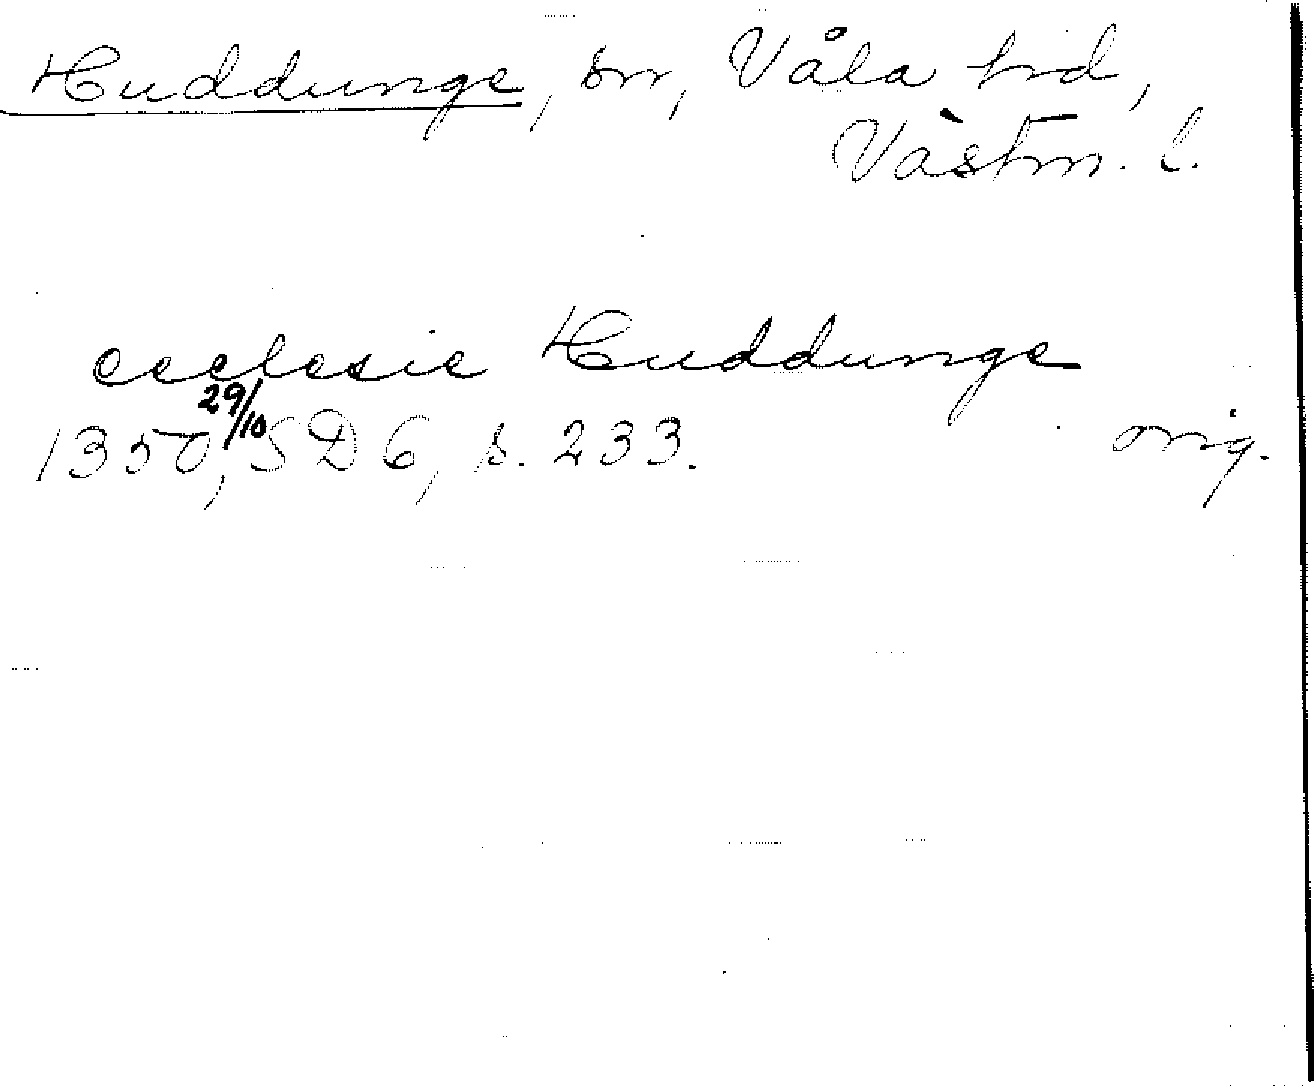 Huddunge, sn, Våla hd,
Västm. l.
ecclesie Huddunge
1350 29/10, SD 6, s. 233. orig.